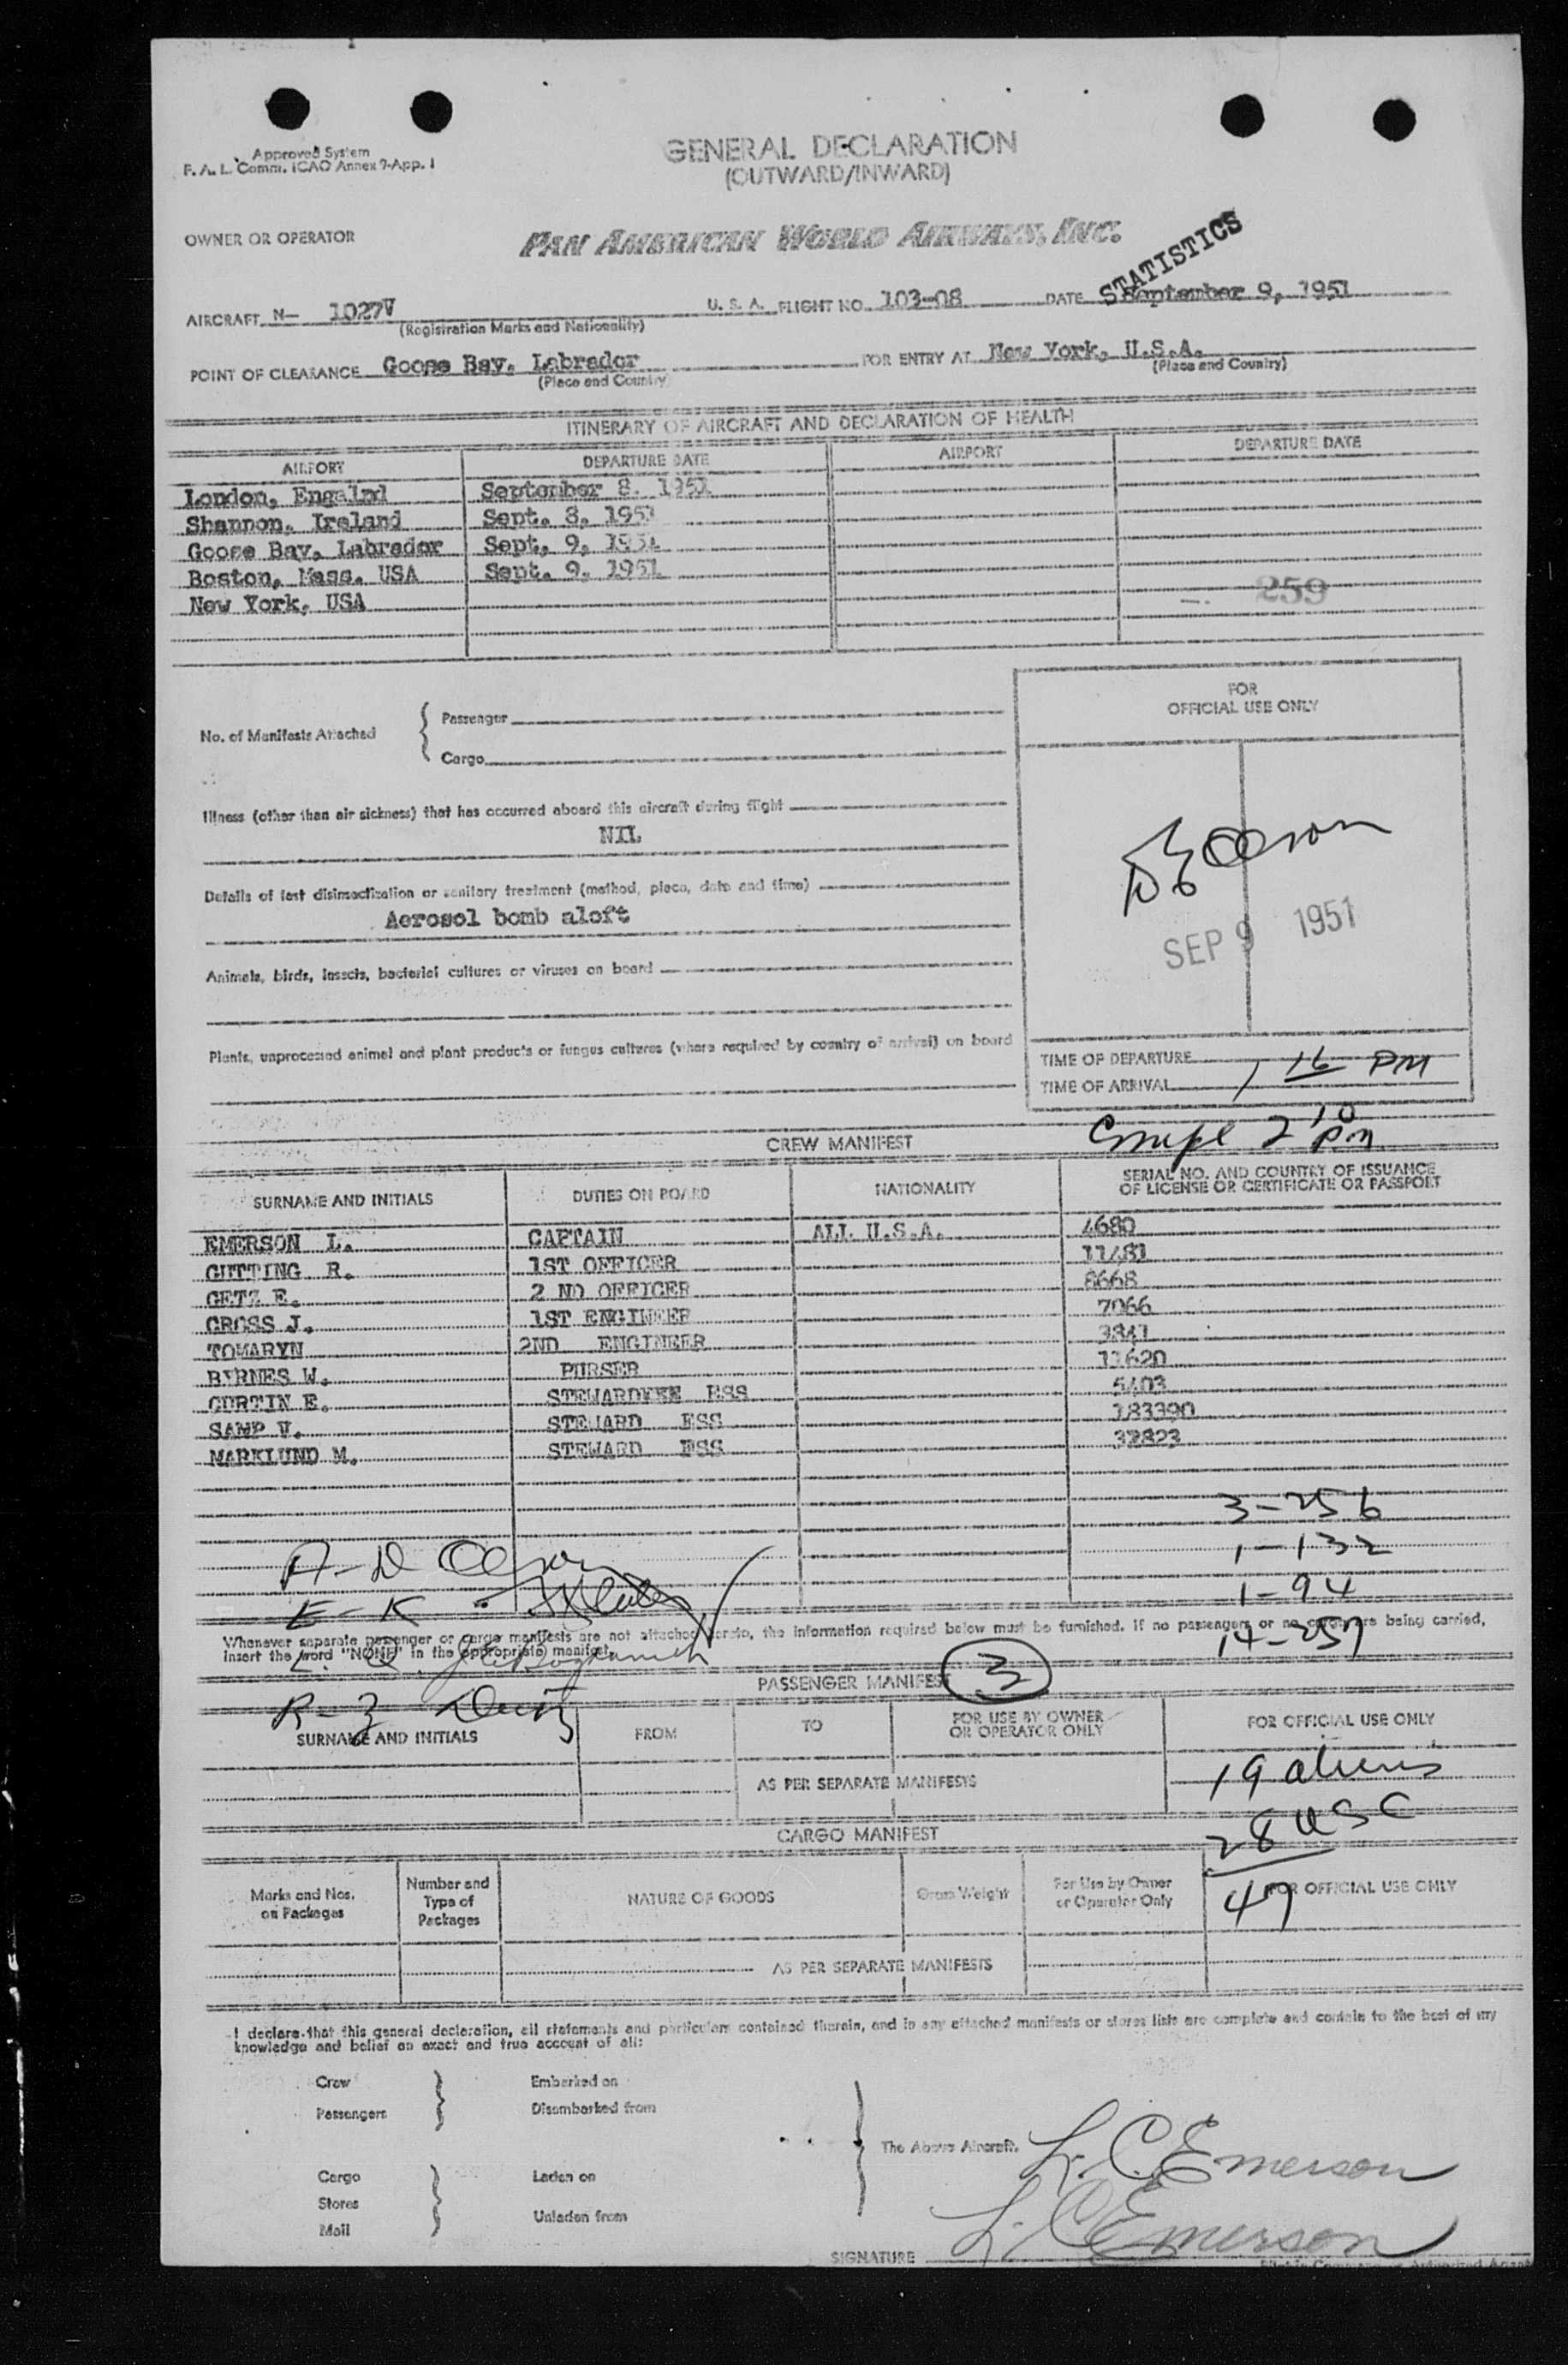 Approved System
F. A. L. Comm. ICAO Annex 9-App. 1
GENERAL DECLARATION
(OUTWARD/INWARD)
OWNER OR OPERATOR
PAN AMERICAN WORLD AIRWAYS, INC.
STATISTICS
AIRCRAFT N- 1027V U. S. A. FLIGHT NO. 103-08 DATE September 9, 1951
(Registration Marks and Nationality)
POINT OF CLEARANCE Goose Bay, Labrador FOR ENTRY AT New York, U.S.A.
(Place and Country) (Place and Country)
ITINERARY OF AIRCRAFT AND DECLARATION OF HEALTH
AIRPORT DEPARTURE DATE AIRPORT DEPARTURE DATE
London, Engalnd September 8. 1951
Shannon, Ireland Sept. 8, 1951
Goose Bay, Labrador Sept. 9, 1951
Boston, Mass. USA Sept. 9. 1951
New York, USA
259
FOR
OFFICIAL USE ONLY
No. of Manifests Attached
Passenger
Cargo
Illness (other than air sickness) that has occurred aboard this aircraft during flight
NIL
Details of last disinsectization or sanitary treatment (method, place, date and time)
Aerosol bomb aloft
SEP 9 1951
Animals, birds, insects, bacterial cultures or viruses on board
Plants, unprocessed animal and plant products or fungus cultures (where required by country of arrival) on board
TIME OF DEPARTURE
TIME OF ARRIVAL 1 16 PM
2 10 PM
CREW MANIFEST
SURNAME AND INITIALS DUTIES ON BOARD NATIONALITY SERIAL NO. AND COUNTRY OF ISSUANCE
OF LICENSE OR CERTIFICATE OR PASSPORT
EMERSON L. CAPTAIN ALL U.S.A. 4680
GUTTING R. 1ST OFFICER 11481
GETZ E. 2 ND OFFICER 8668
GROSS J. 1ST ENGINEER 7066
TOMARYN 2ND ENGINEER 3841
BYRNES W. PURSER 11620
CURTIN E. STEWARD ESS 5403
SAMP V. STEWARD ESS 183390
MARKLUND M. STEWARD ESS 32823
3-256
1-132
1-94
14-257
A-D Olson
E-K
Whenever separate passenger or cargo manifests are not attached hereto, the information required below must be furnished. If no passengers or no cargo are being carried,
insert the word "NONE" in the appropriate manifest.
PASSENGER MANIFEST 3
R-Z
SURNAME AND INITIALS FROM TO FOR USE BY OWNER
OR OPERATOR ONLY FOR OFFICIAL USE ONLY
AS PER SEPARATE MANIFESTS
19 aliens
28 USC
47
CARGO MANIFEST
Marks and Nos.
on Packages
Number and
Type of
Packages
NATURE OF GOODS
Gross Weight
For Use by Owner
or Operator Only
FOR OFFICIAL USE ONLY
AS PER SEPARATE MANIFESTS
I declare that this general declaration, all statements and particulars contained therein, and in any attached manifests or stores lists are complete and contain to the best of my
knowledge and belief an exact and true account of all:
Crew Embarked on
Passengers Disembarked from
The Above Aircraft.
L. C. Emerson
Cargo Laden on
Stores
Mail Unladen from
SIGNATURE L. C. Emerson